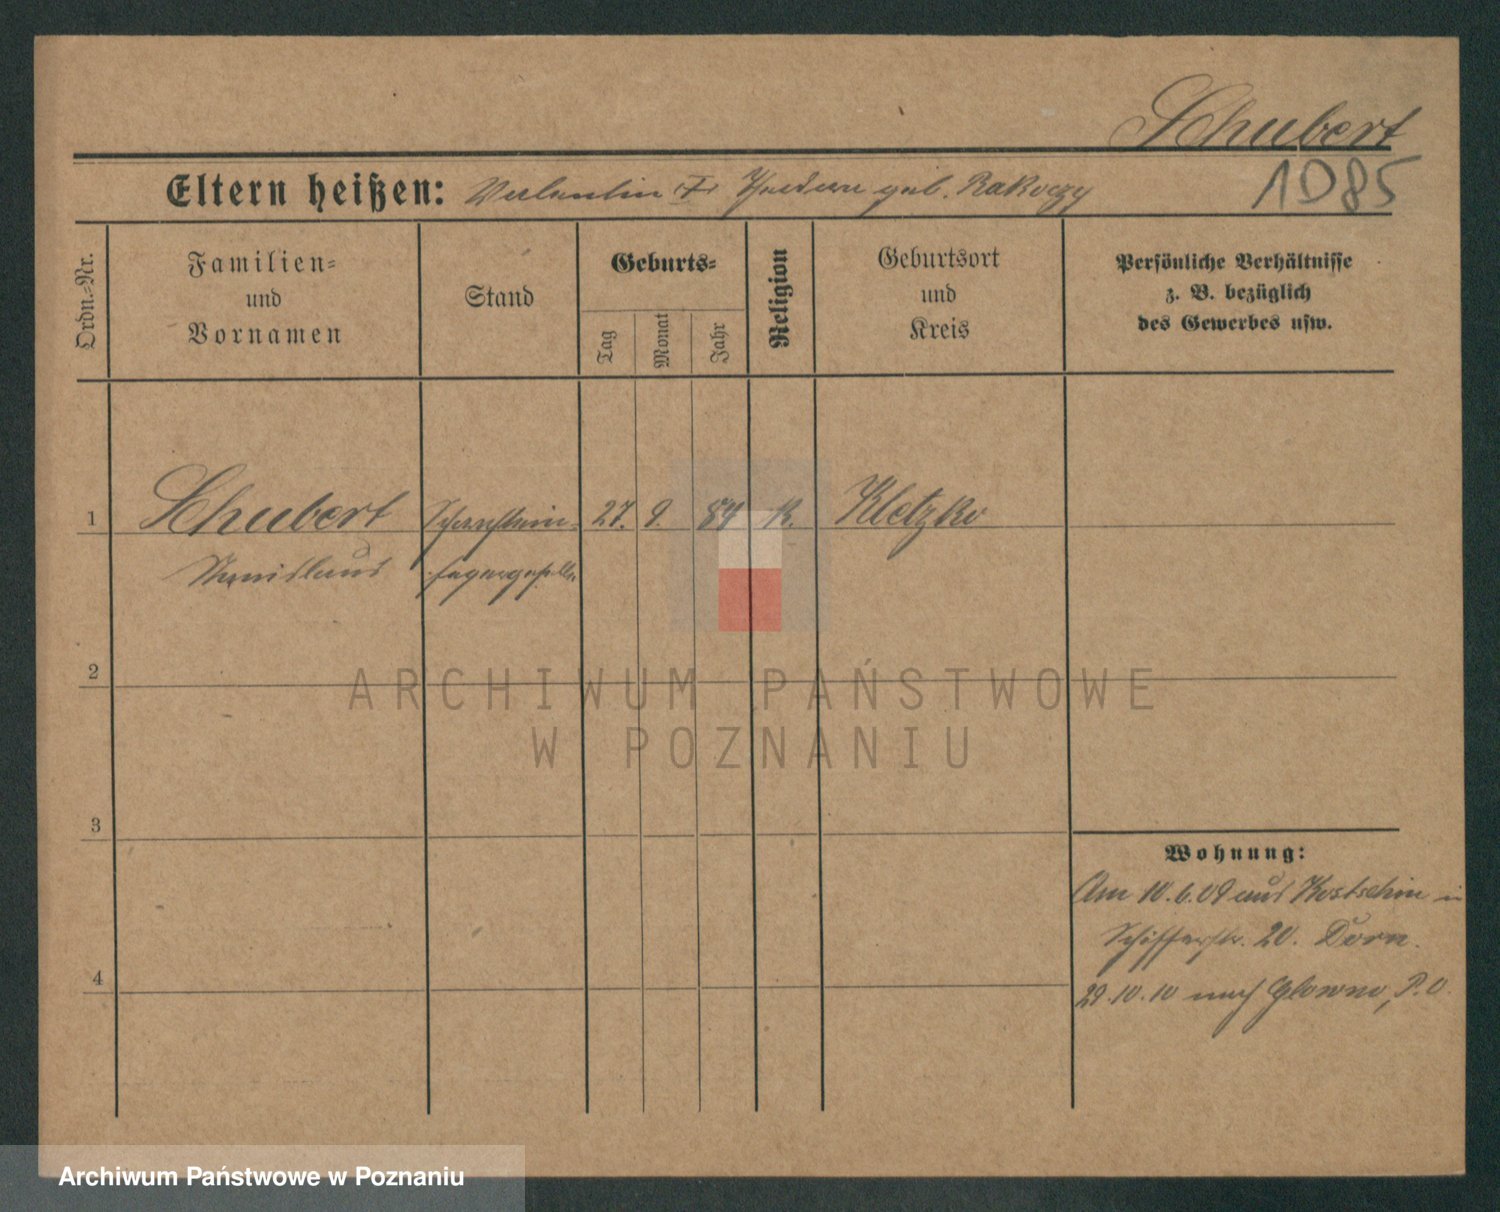 Schubert
1085
Eltern heißen: Valentin u. Isidora geb. Rakoczy
Ordn.-Nr.
Familien-
und
Vornamen
Stand
Geburts-
Tag
Monat
Jahr
Religion
Geburtsort
und
Kreis
Persönliche Verhältnisse
z. B. bezüglich
des Gewerbes usw.
1
Schubert Schornstein- 27. 9. 84 K. Kletzko
Stanislaus fegergeselle
2
ARCHIWUM PAŃSTWOWE
W POZNANIU
3
Wohnung:
Am 10.6.09 aus Kostschin in
Schifferstr. 20. Dorn.
4
29.10.10 nach Glowno, P. O.
Archiwum Państwowe w Poznaniu